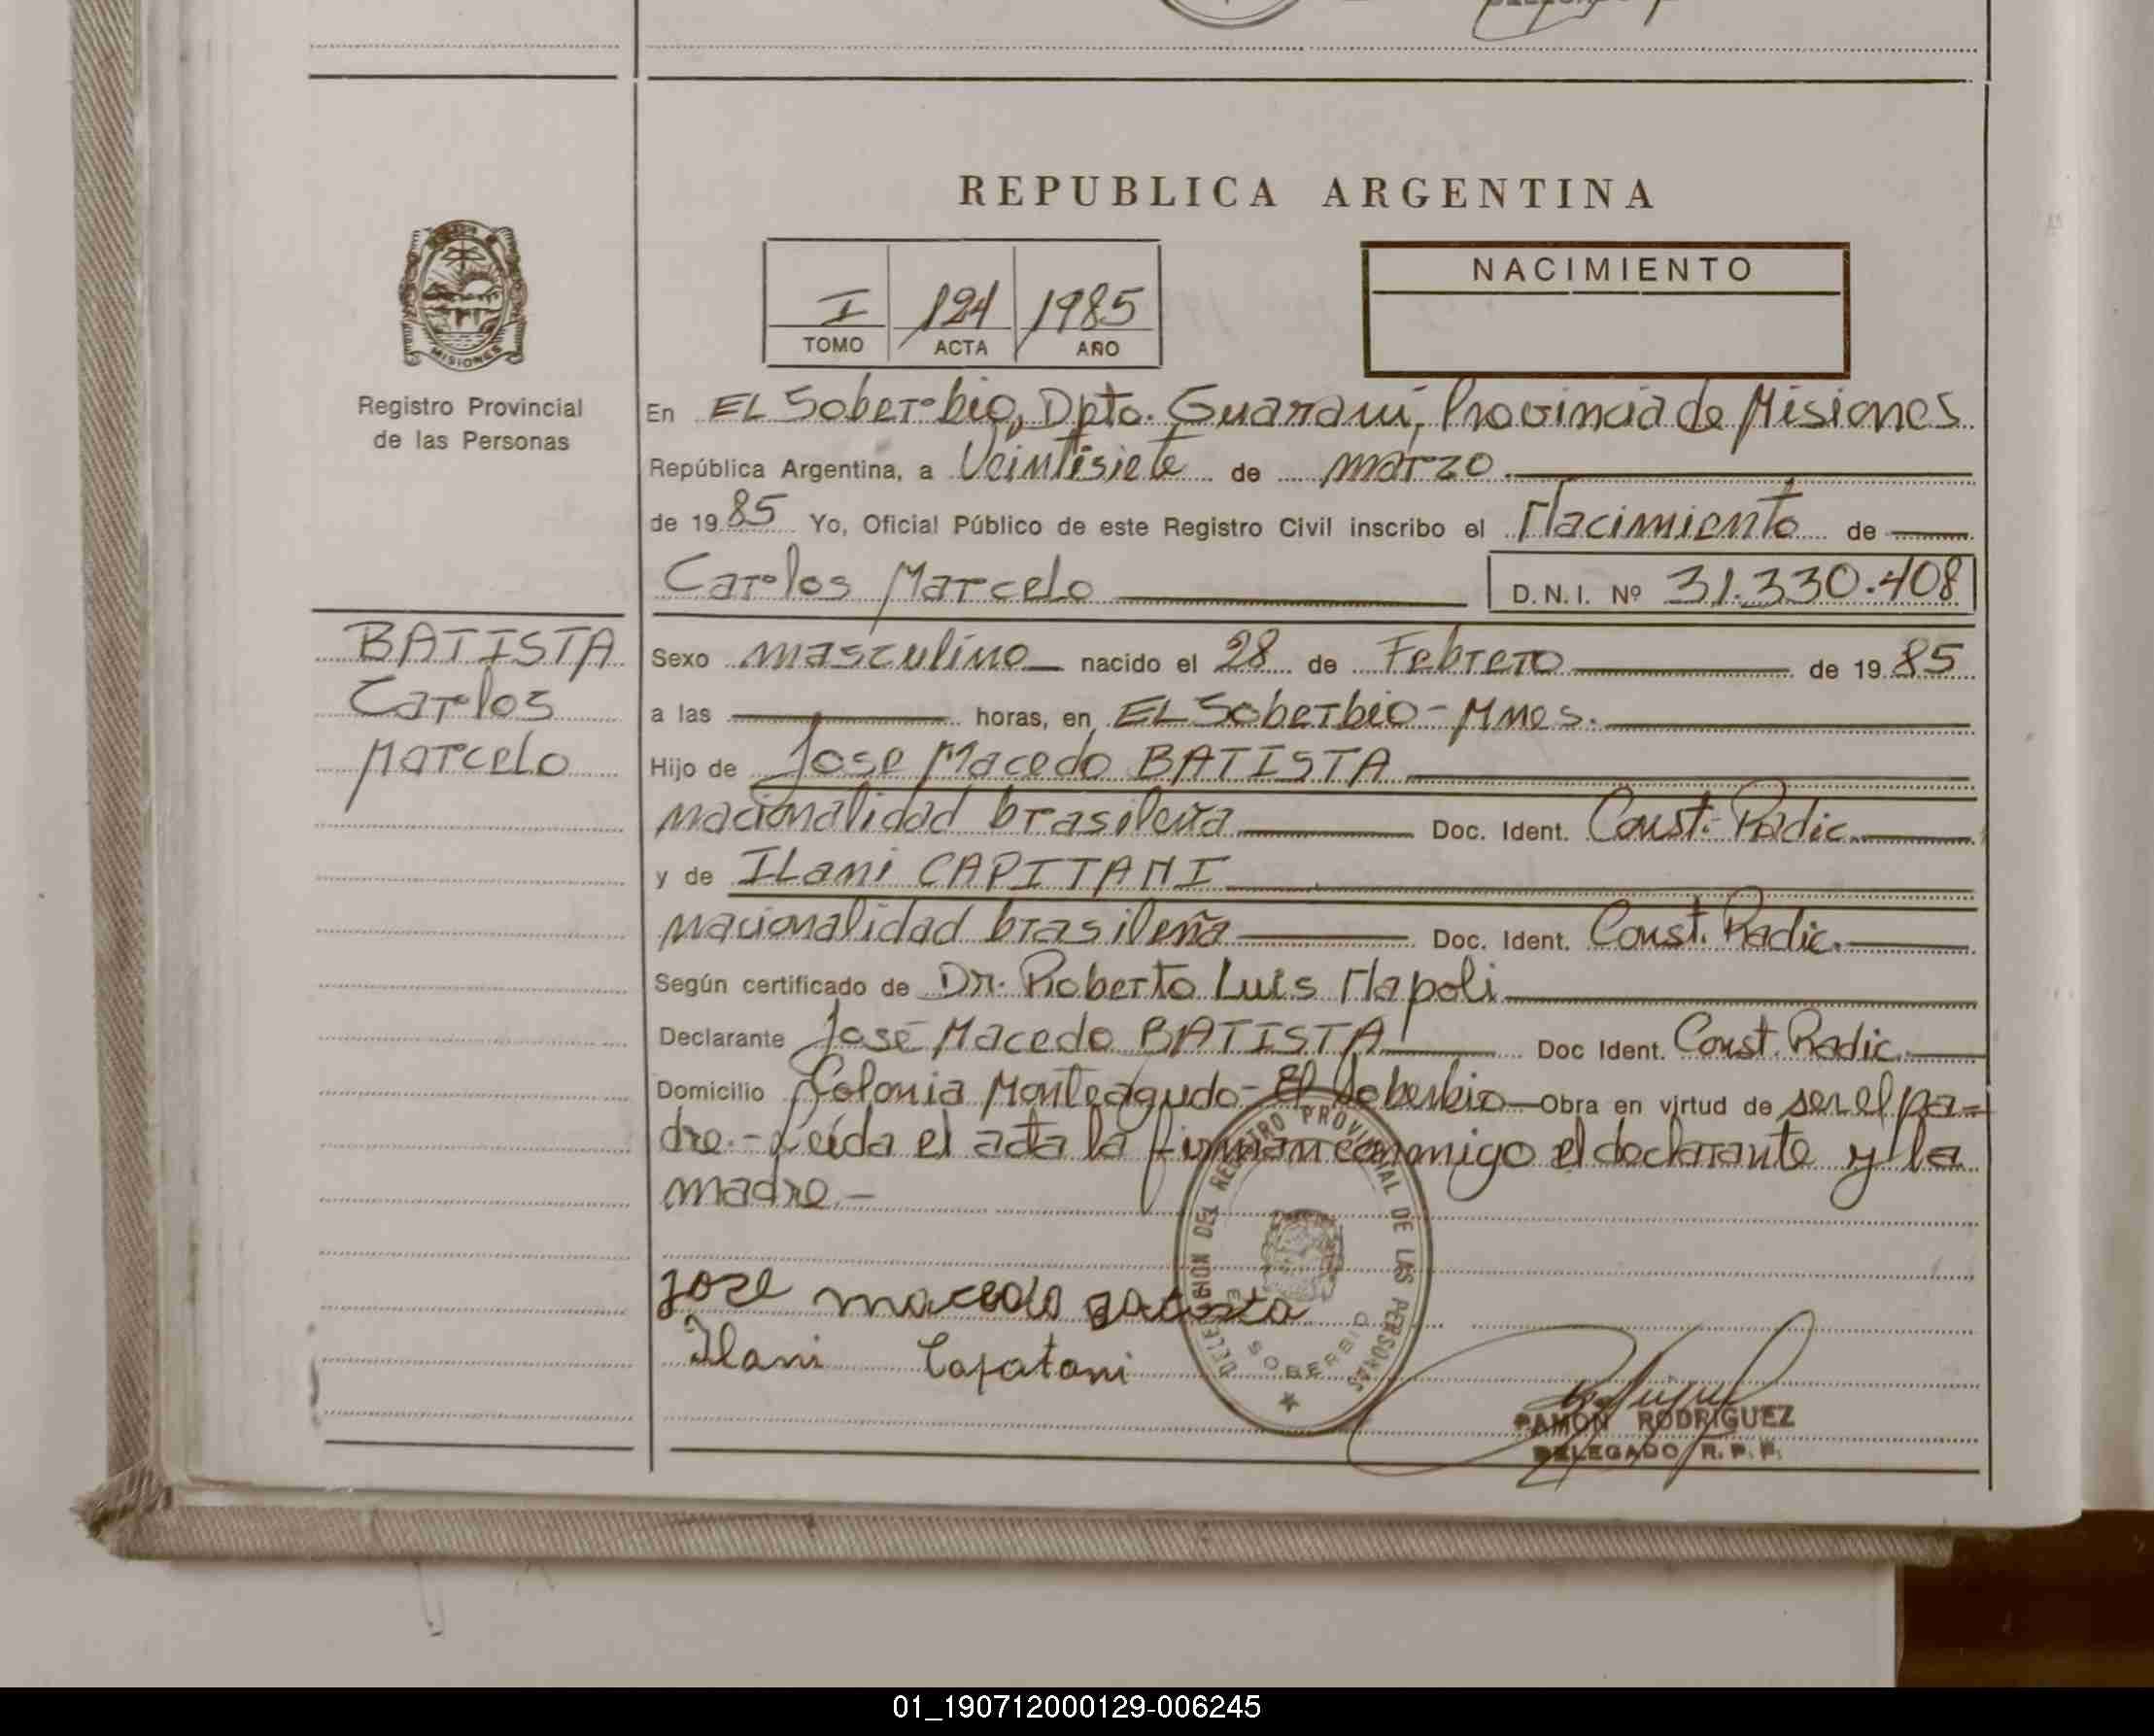 REPUBLICA ARGENTINA
MISIONES
Registro Provincial
de las Personas
I 124 1985
TOMO ACTA AÑO
NACIMIENTO
En EL Soberbio, Dpto. Guaraní, Provincia de Misiones
República Argentina, a Veintisiete de marzo
de 1985 Yo, Oficial Público de este Registro Civil inscribo el Nacimiento de
Carlos Marcelo D.N.I. Nº 31.330.408
BATISTA
Carlos
Marcelo
Sexo masculino nacido el 28 de Febrero de 1985
a las horas, en EL Soberbio - Mnes.
Hijo de Jose Macedo BATISTA
nacionalidad brasileña Doc. Ident. Const. Radic.
y de ILani CAPITANI
nacionalidad brasileña Doc. Ident. Const. Radic.
Según certificado de Dr. Roberto Luis Napoli
Declarante José Macedo BATISTA Doc Ident. Const. Radic.
Domicilio Colonia Monteagudo - El Soberbio Obra en virtud de ser el pa=
dre.- Leída el acta la firman conmigo el declarante y la
madre.-
DELEGACION DEL REGISTRO PROVINCIAL DE LAS PERSONAS
EL SOBERBIO
Jose macedo batista
Ilani Capatani
RAMON RODRIGUEZ
DELEGADO R. P. P.
01_190712000129-006245